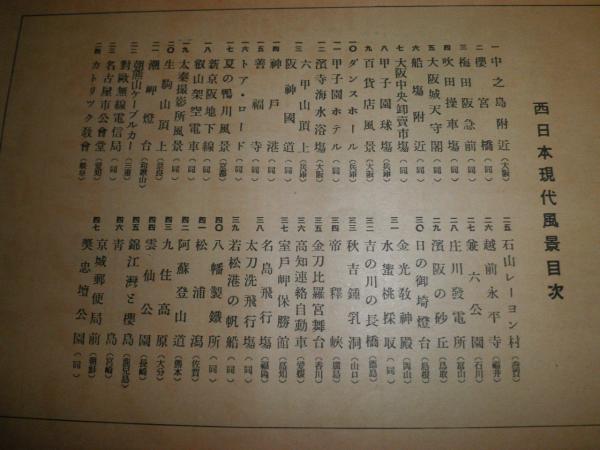 西日本現代風景目次
一 中之島附近（大阪）
二 櫻宮橋（同）
三 梅田阪急前（同）
四 吹田操車場（同）
五 大阪城天守閣（同）
六 船場附近（同）
七 大阪中央卸賣市場（同）
八 甲子園球場（兵庫）
九 百貨店風景（大阪）
一〇 ダンスホール（兵庫）
一一 甲子園ホテル（同）
一二 濱寺海水浴場（大阪）
一三 六甲山頂上（兵庫）
一四 阪神國道（同）
一四 神戸港（同）
一五 善福寺（同）
一六 トア・ロード（同）
一七 夏の鴨川風景（京都）
一八 新京阪地下線（同）
一八 叡山架空電車（同）
一九 太秦撮影所風景（同）
二〇 生駒山頂上（奈良）
二一 潮岬燈台（和歌山）
二二 朝熊山ケーブルカー（三重）
二二 對歐無線電信局（同）
二三 名古屋市公會堂（愛知）
二四 カトリック教會（岐阜）
二五 石山レーヨン村（滋賀）
二六 越前永平寺（福井）
二七 兼六公園（石川）
二八 庄川發電所（富山）
二九 濱阪の砂丘（鳥取）
三〇 日の御埼燈台（島根）
三一 金光教神殿（岡山）
三一 水蜜桃採取（同）
三二 吉の川の長橋（徳島）
三三 秋吉鍾乳洞（山口）
三四 帝釋峽（廣島）
三五 金刀比羅宮舞台（香川）
三六 高知連絡自動車（愛媛）
三七 室戸岬保勝館（高知）
三八 名島飛行場（福岡）
三八 太刀洗飛行場（同）
三九 若松港の帆船（同）
四〇 八幡製鐵所（同）
四一 松浦潟（佐賀）
四二 阿蘇登山道（熊本）
四三 九住高原（大分）
四四 雲仙公園（長崎）
四五 錦江灣と櫻島（鹿兒島）
四六 青島（宮崎）
四七 京城郵便局前（朝鮮）
四七 奬忠壇公園（同）